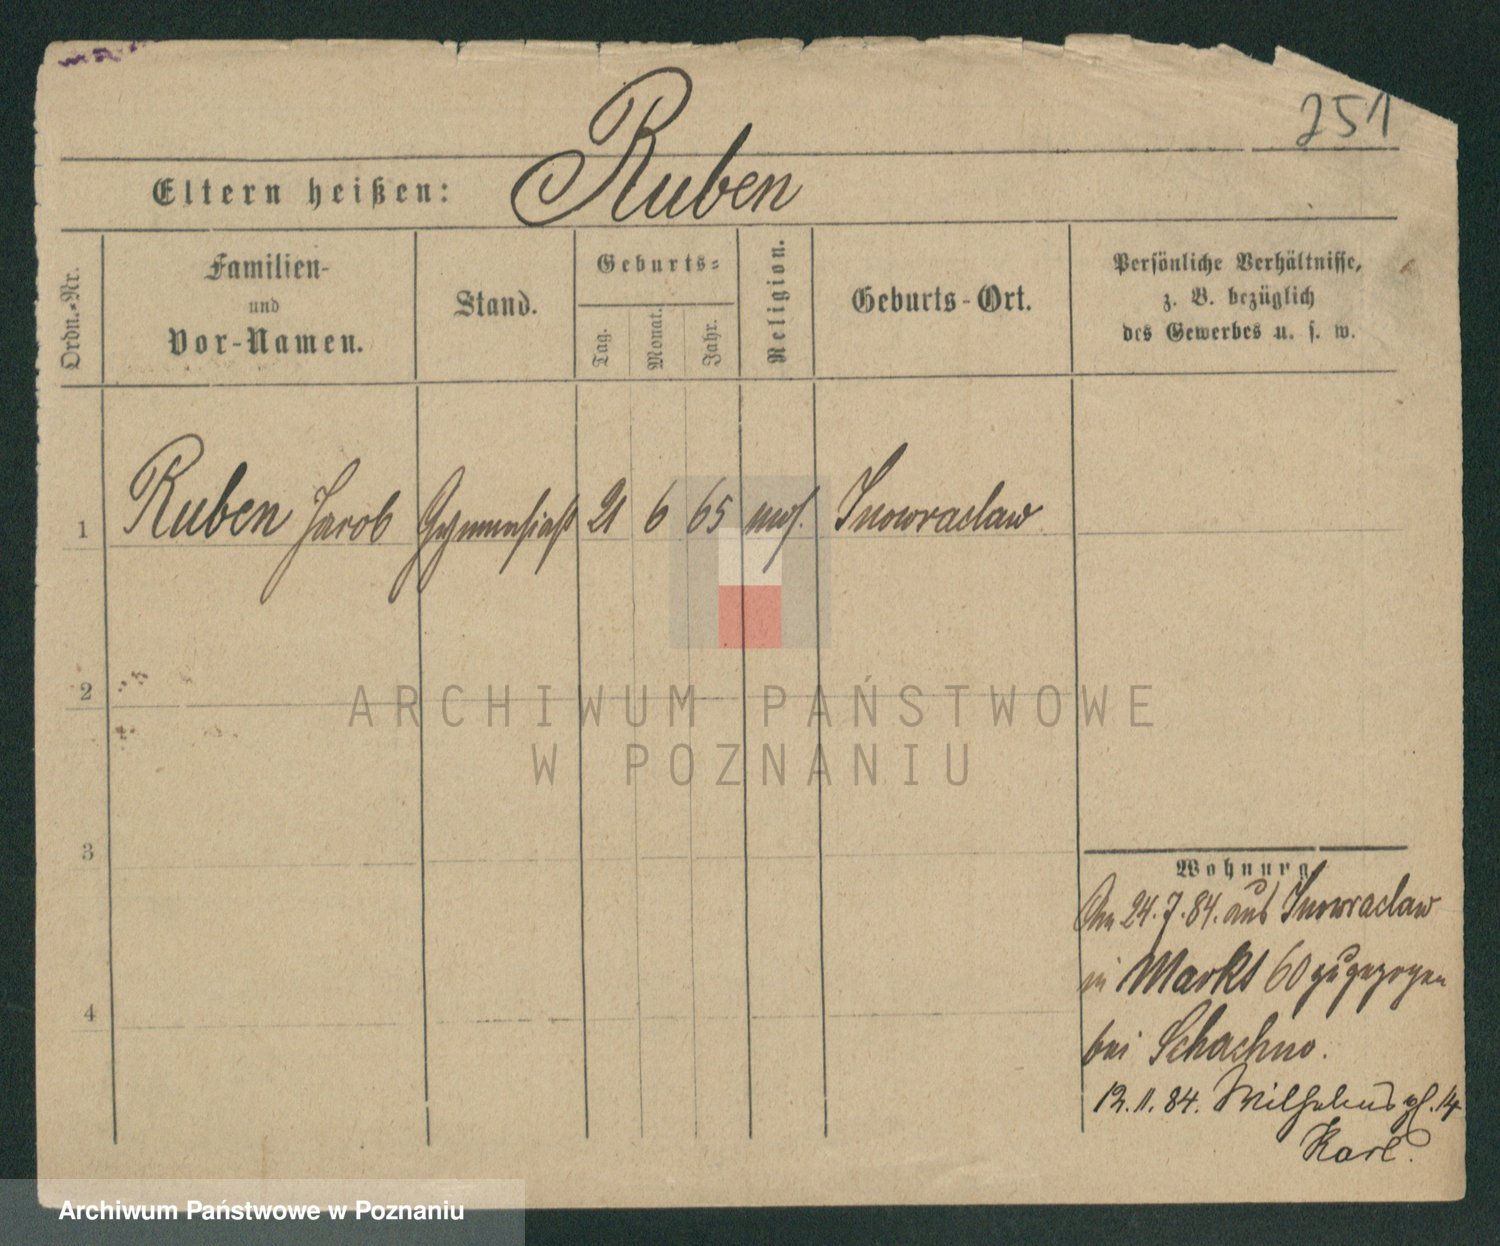 251
Eltern heißen: Ruben
Ordn.-Nr.
Familien-
und
Vor-Namen.
Stand.
Geburts-
Tag.
Monat.
Jahr.
Religion.
Geburts-Ort.
Persönliche Verhältnisse,
z. B. bezüglich
des Gewerbes u. s. w.
1 Ruben Jacob Gymnasiast 21 6 65 mos. Inowraclaw
2
ARCHIWUM PAŃSTWOWE
W POZNANIU
3
Wohnung
Am 24.7.84. aus Inowraclaw
in Markt 60 zugezogen
bei Schachno.
4
12.11.84. Wilhelms pl. 14
Karl.
Archiwum Państwowe w Poznaniu